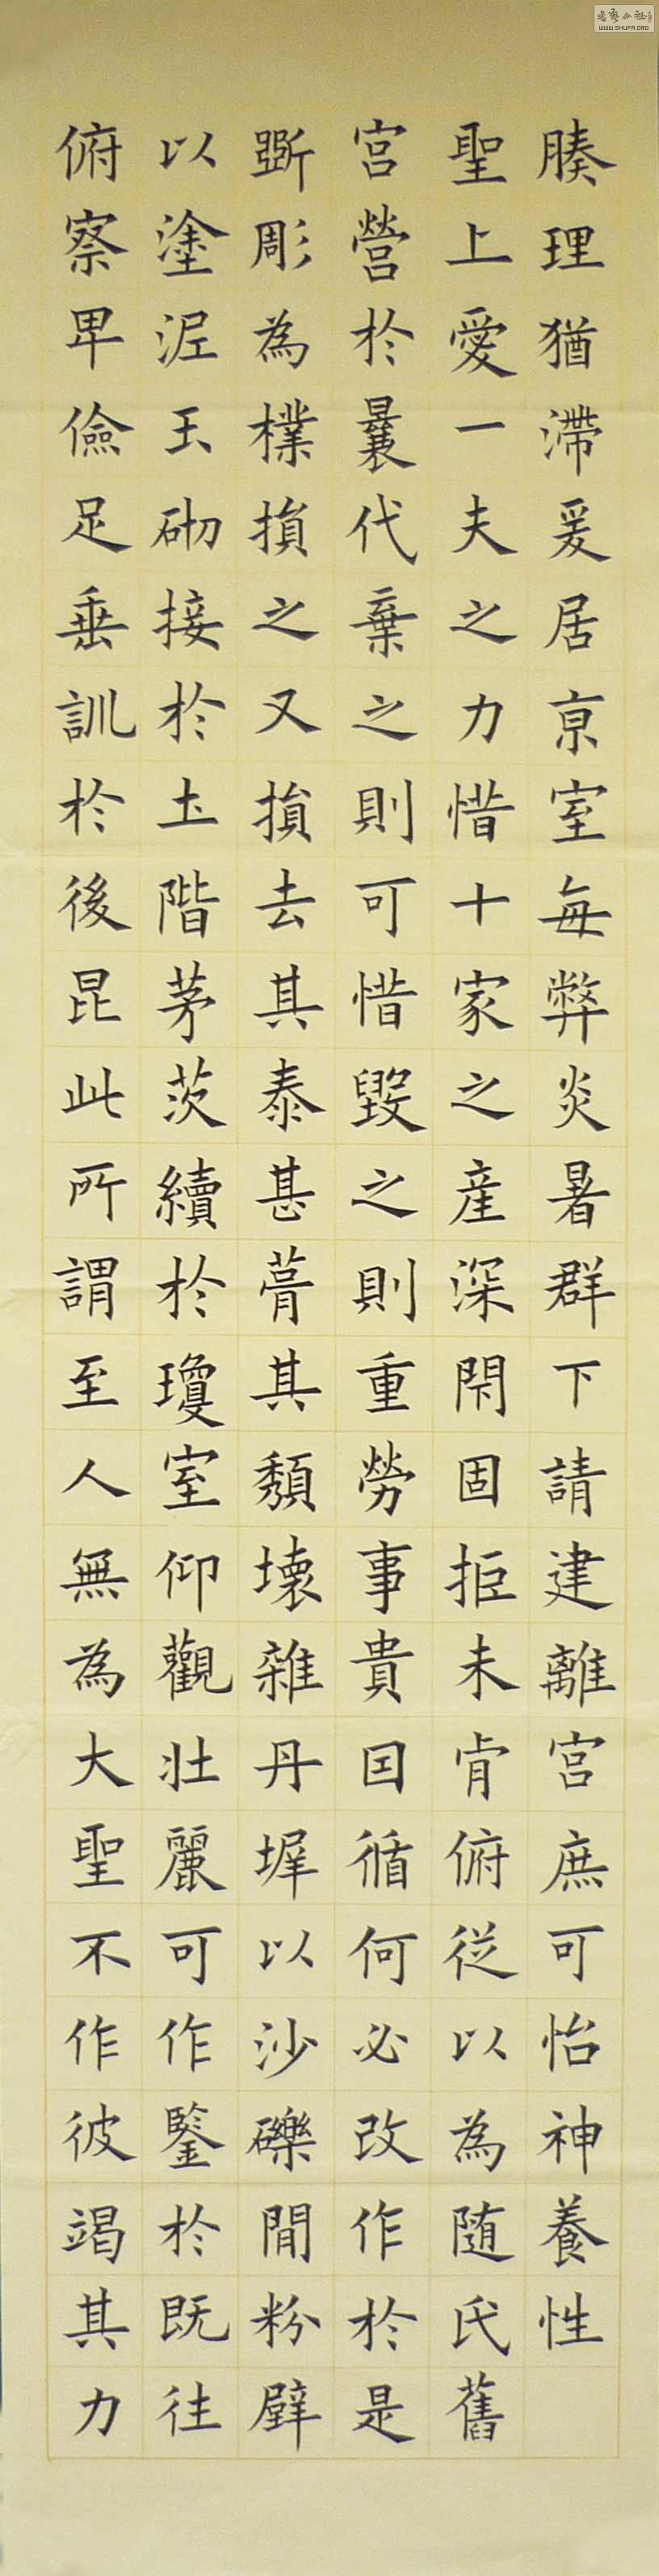 腠理猶滯爰居亰室每弊炎暑群下請建離宫庶可怡神養性
聖上愛一夫之力惜十家之産深閇固拒未肯俯従以為随氏舊
宫營於曩代棄之則可惜毀之則重勞事貴囙循何必改作於是
斲彫為樸損之又損去其泰甚葺其頽壊雜丹墀以沙礫間粉壁
以塗泥玉砌接於土階茅茨續於瓊室仰觀壮麗可作鑒於既往
俯察卑儉足垂訓於後昆此所謂至人無為大聖不作彼竭其力
WWW.SHUFA.ORG